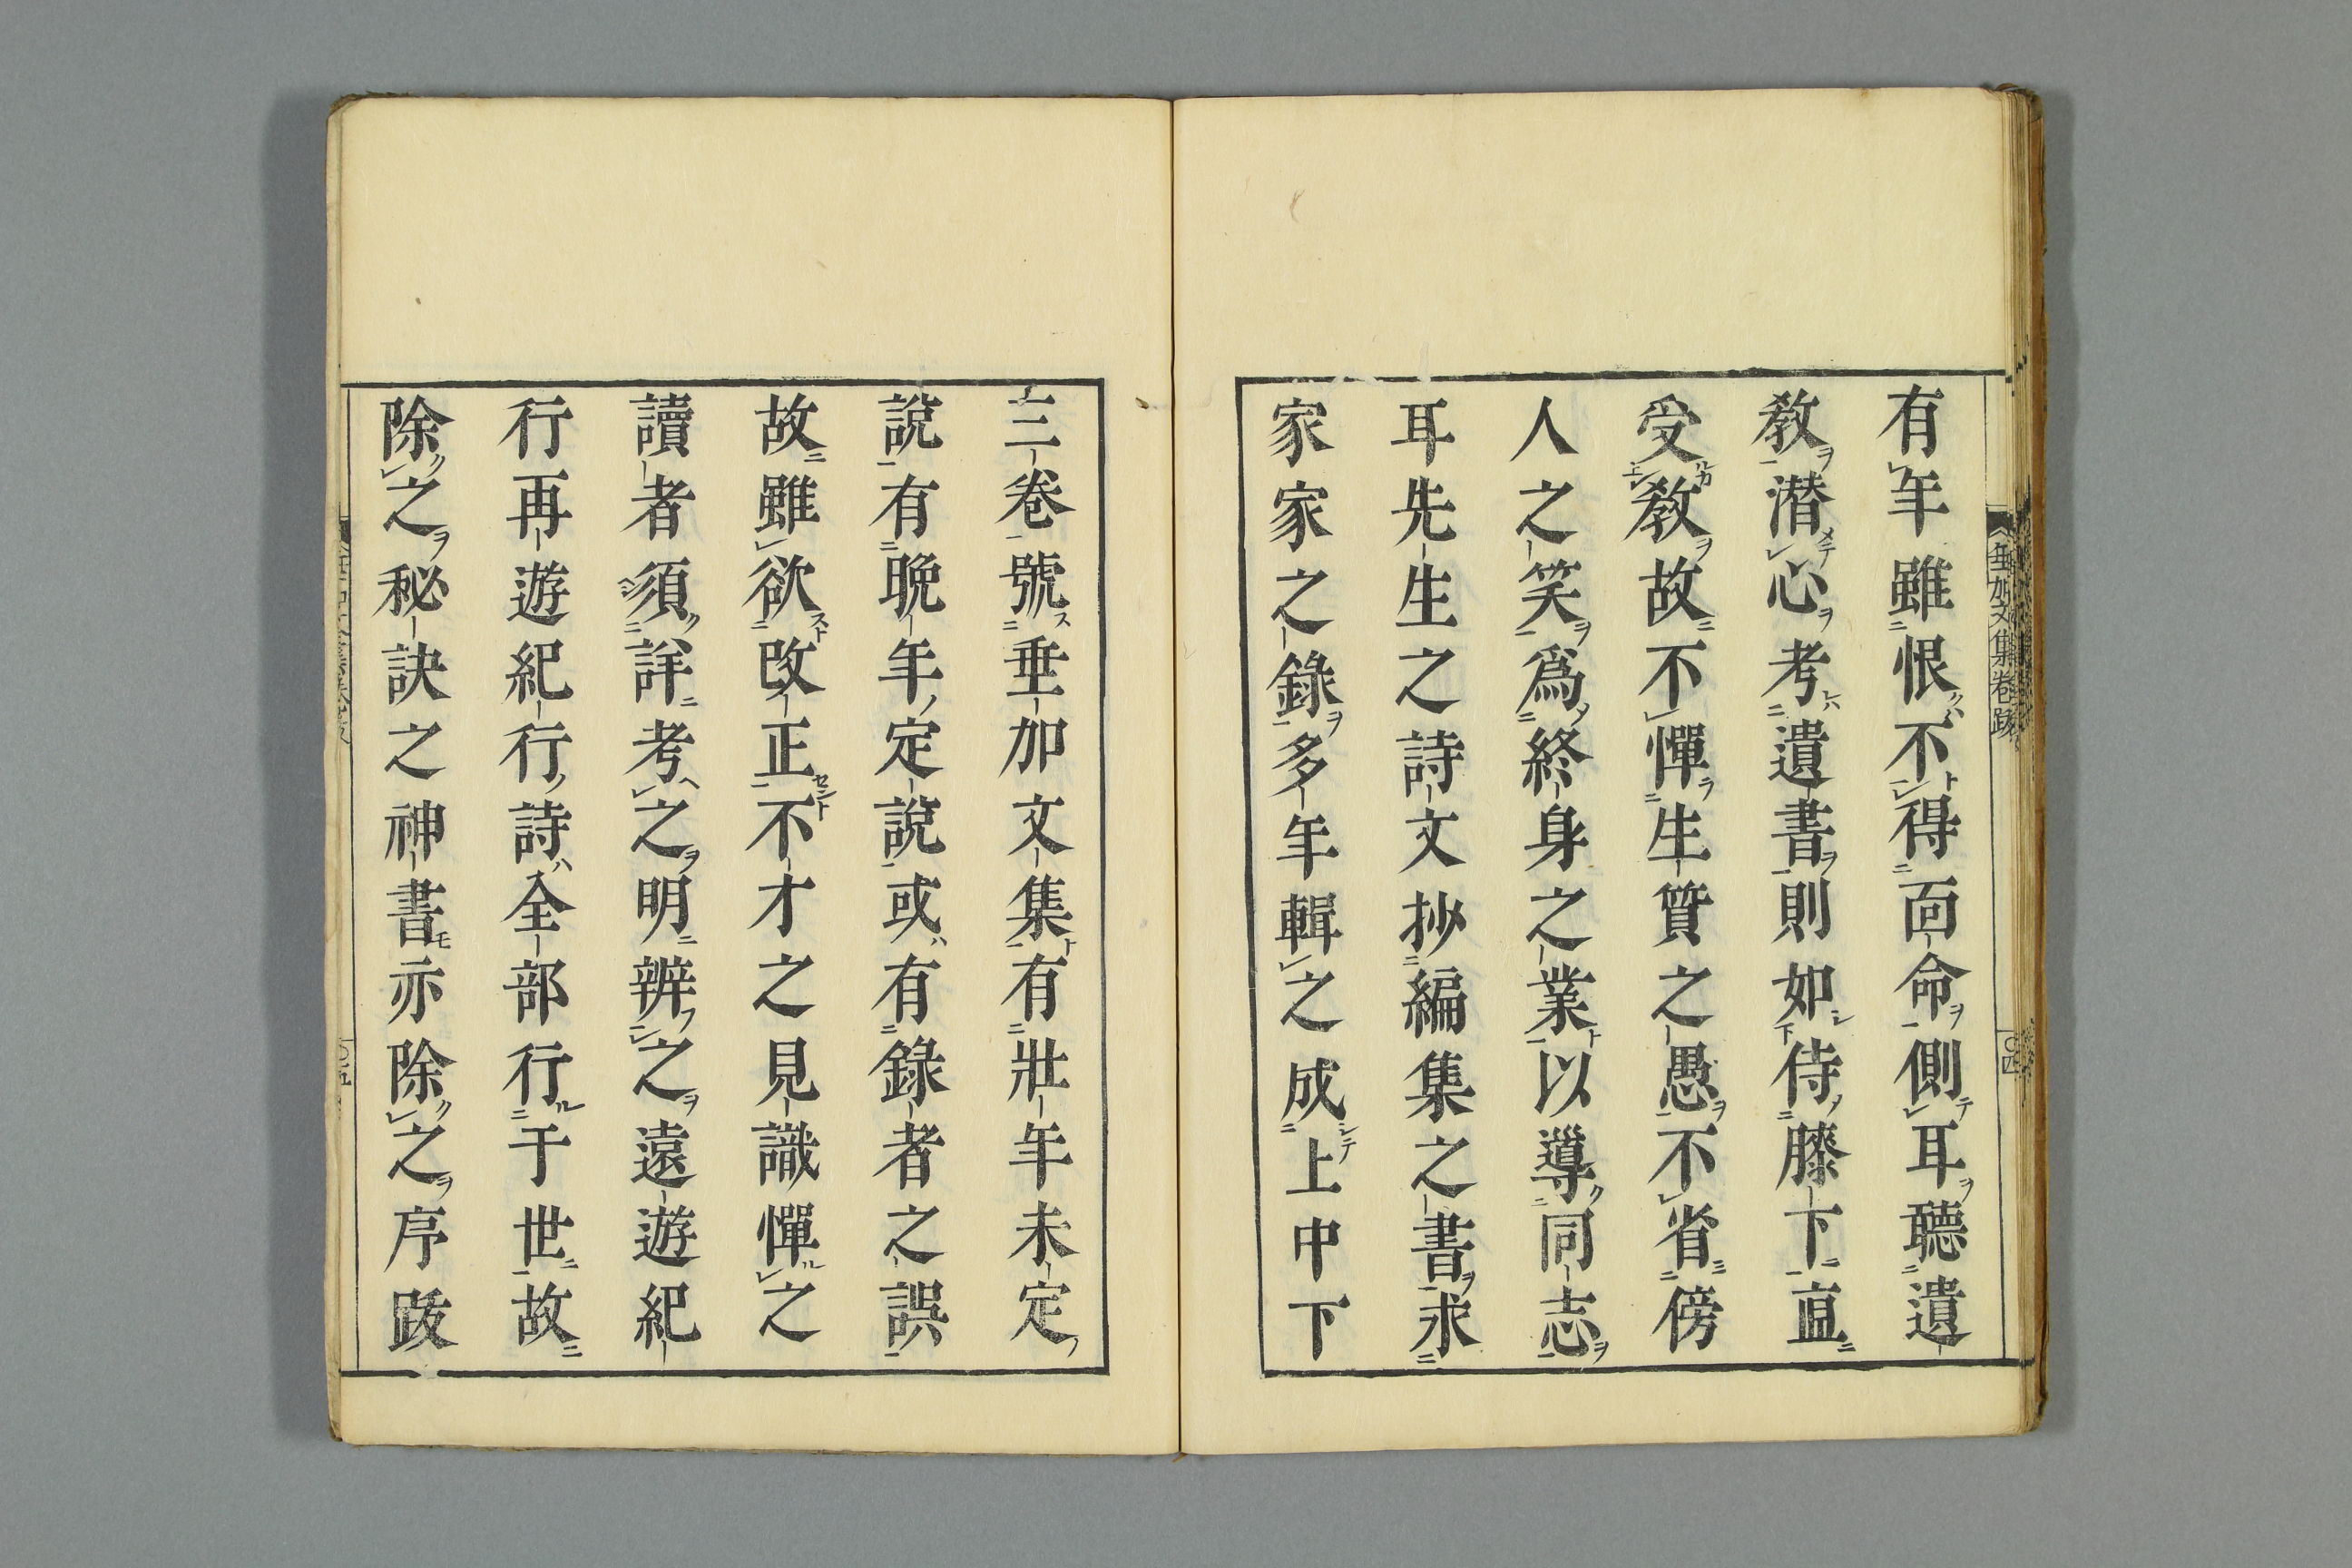 有年雖恨不得面命側耳聽遺
教潜心考遺書則如侍膝下直
受教故不憚生質之愚不省傍
人之笑爲終身之業以導同志
耳先生之詩文抄編集之書求
家家之錄多年輯之成上中下
三卷號垂加文集有壯年未定
說有晩年定說或有錄者之誤
故雖欲改正不才之見識憚之
讀者須詳考之明辨之遠遊紀
行再遊紀行詩全部行于世故
除之秘訣之神書亦除之序跋
垂加文集卷跋